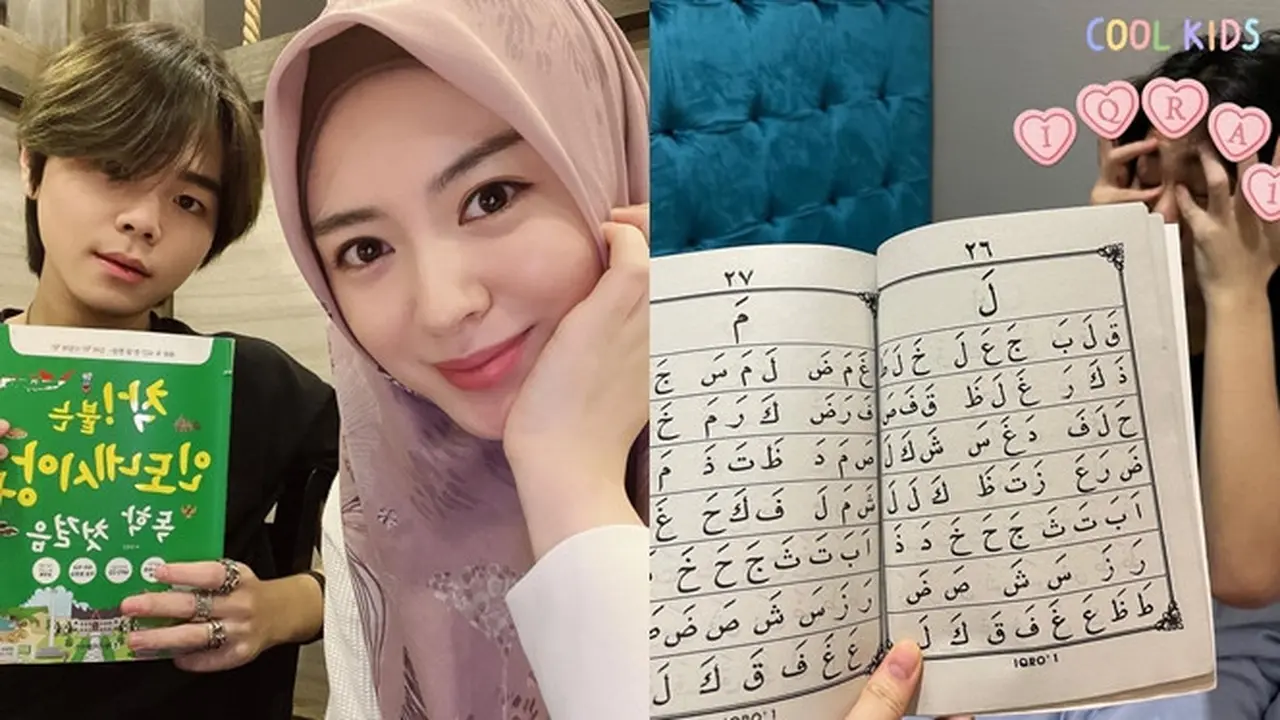 착! 붙는
인도네시아
독학 첫걸음
COOL KIDS
I Q R A 1
٢٦
لَ
قَ لَ بَ جَ عَ لَ خَ لَ
ذَ كَ رَ غَ لَ ظَ قَ فَ صَ
حَ لَ فَ دَ غَ سَ شَ كَ لَ
ضَ رَ عَ زَ تَ ظَ كَ لَ لَ
اَ بَ تَ ثَ جَ حَ خَ دَ ذَ
رَ زَ سَ شَ صَ ضَ
طَ ظَ عَ غَ فَ قَ كَ لَ
IQRO' 1
٢٧
مَ
غَ مَ ضَ لَ مَ سَ جَ
فَ رَ ضَ كَ رَ مَ خَ
صَ مَ دَ ظَ تَ دَ مَ
شَ مَ لَ فَ كَ حَ غَ
اَ بَ تَ ثَ جَ حَ خَ
رَ زَ سَ شَ صَ ضَ
عَ غَ فَ قَ كَ لَ
IQRO' 1